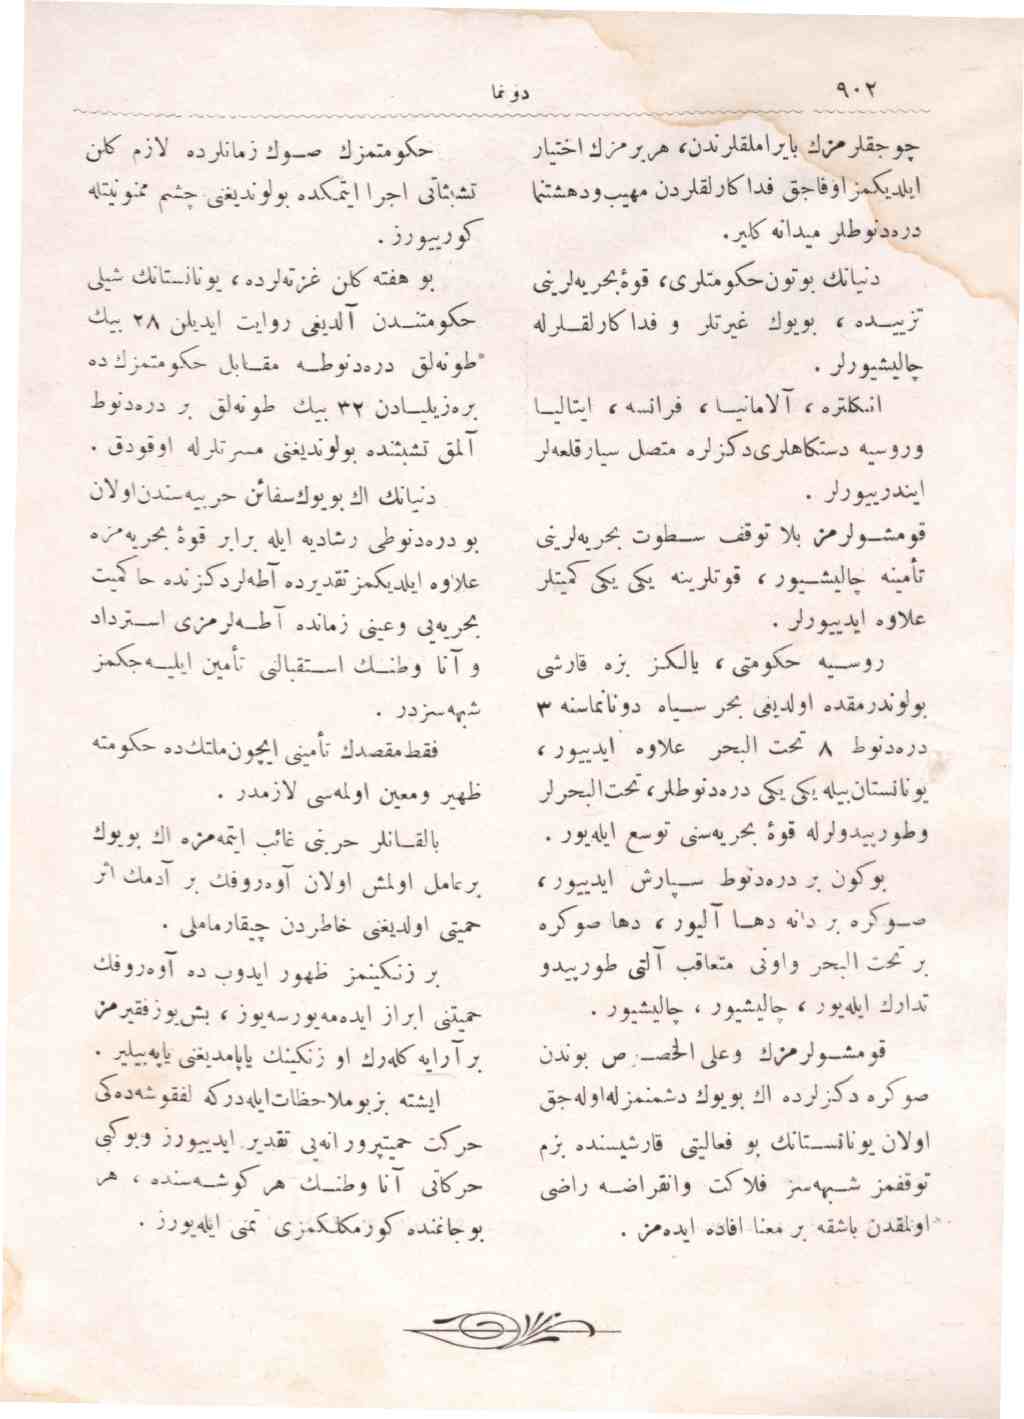 ٩٠٢
دونما
چوجقلرمزك بایراملقلرندن، هربرمزك اختیار
ایلدیكمز اوفاجق فداكارلقلردن مهیب ودهشتنما
دره‌دنوطلر میدانه كلیر.
دنیانك بوتون حكومتلری، قوۀ بحریه‌لرینی
تزییـده ، بویوك غیرتلر و فداكارلقـلرله
چالیشیورلر .
انكلتره ، آلامانیـا ، فرانسه ، ایتالیـا
وروسیه دستكاهلری دكزلره متصل سیارقلعه‌لر
ایندرییورلر .
قومشـولرمز بلا توقف سـطوت بحریه‌لرینی
تأمینه چالیشـیور ، قوتلرینه یكی یكی كمیتلر
علاوه ایدییورلر .
روسـیه حكومتی ، یالكـز بزه قارشی
بولوندرمقده اولدیغی بحر سـیاه دونانماسنه ٣
دره‌دنوط ٨ تحت البحر علاوه ایدییور ،
یونانستان بیله یكی یكی دره‌دنوطلر، تحت‌البحرلر
وطورپیدولرله قوۀ بحریه‌سنی توسع ایله‌یور .
بوكون بر دره‌دنوط سـپارش ایدییور ،
صـوكره بر دانه دهـا آلیور ، دها صوكره
بر تحت البحر واونی متعاقب آلتی طورپیدو
تدارك ایله‌یور ، چالیشیور ، چالیشیور .
قومشـولرمزك وعلی الخصـوص بوندن
صوكره دكزلرده اك بویوك دشمنمزله‌اوله‌جق
اولان یونانسـتانك بو فعالیتی قارشیسنده بزم
توقفمز شـبهه‌سز فلاكت وانقراضـه راضی
اولمقدن باشقه بر معنا افاده ایده‌مز .
حكومتمزك صـوك زمانلرده لازم كلن
تشبثاتی اجرا ایتمكده بولوندیغنی چشم ممنونیتله
كورییورز .
بو هفته كلن غزته‌لرده ، یونانستانك شیلی
حكومتنـدن آلدیغی روایت ایدیلن ٢٨ بیك
طونه‌لق دره‌دنوطـه مقـابل حكومتمزك ده
بره‌زیلیـادن ٣٢ بیك طونه‌لق بر دره‌دنوط
آلمق تشبثنده بولوندیغنی مسرتلرله اوقودق .
دنیانك اك بویوك سفائن حربیه‌سندن اولان
بو دره‌دنوطی رشادیه ایله برابر قوۀ بحریه‌مزه
علاوه ایلدیكمز تقدیرده آطه‌لردكزنده حاكمیت
بحریه‌یی وعینی زمانده آطـه‌لرمزی اسـترداد
و آنا وطنـك اسـتقبالنی تأمین ایلیـه‌جكمز
شبهه‌سزدر .
فقط مقصدك تأمینی ایچون ملتك ده حكومته
ظهیر ومعین اولمه‌سی لازمدر .
بالقـانلر حربنی غائب ایتمه‌مزه اك بویوك
برعامل اولمش اولان آوه‌روفك بر آدمك اثر
حمیتی اولدیغنی خاطردن چیقارماملی .
بر زنكینمز ظهور ایدوب ده آوه‌روفك
حمیتنی ابراز ایده‌مه‌یورسه‌یوز ، بش‌یوز فقیرمز
بر آرایه كله‌رك او زنكینك یاپامدیغنی یاپه‌بیلیر .
ایشته بزبوملاحظات‌ایله‌دركه لفقوشه‌ده‌كی
حركت حمیتپرورانه‌یی تقدیر ایدییورز وبوكبی
حركاتی آنا وطنـك هر كوشـه‌سنده ، هر
بوجاغنده كورمكلكمزی تمنی ایله‌یورز .